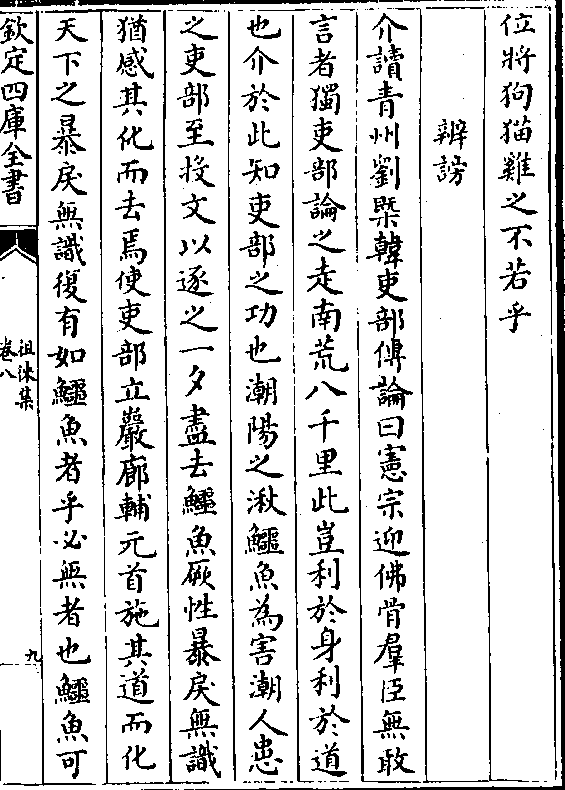 位將狗猫雞之不若乎
辨謗
介讀青州劉槩韓吏部傳論曰憲宗迎佛骨羣臣無敢
言者獨吏部論之走南荒八千里此豈利於身利於道
也介於此知吏部之功也潮陽之湫鱷魚為害潮人患
之吏部至投文以逐之一夕盡去鱷魚厥性暴戾無識
猶感其化而去焉使吏部立巖廊輔元首施其道而化
天下之暴戾無識復有如鱷魚者乎必無者也鱷魚可
欽定四庫全書
徂徠集
卷八
九